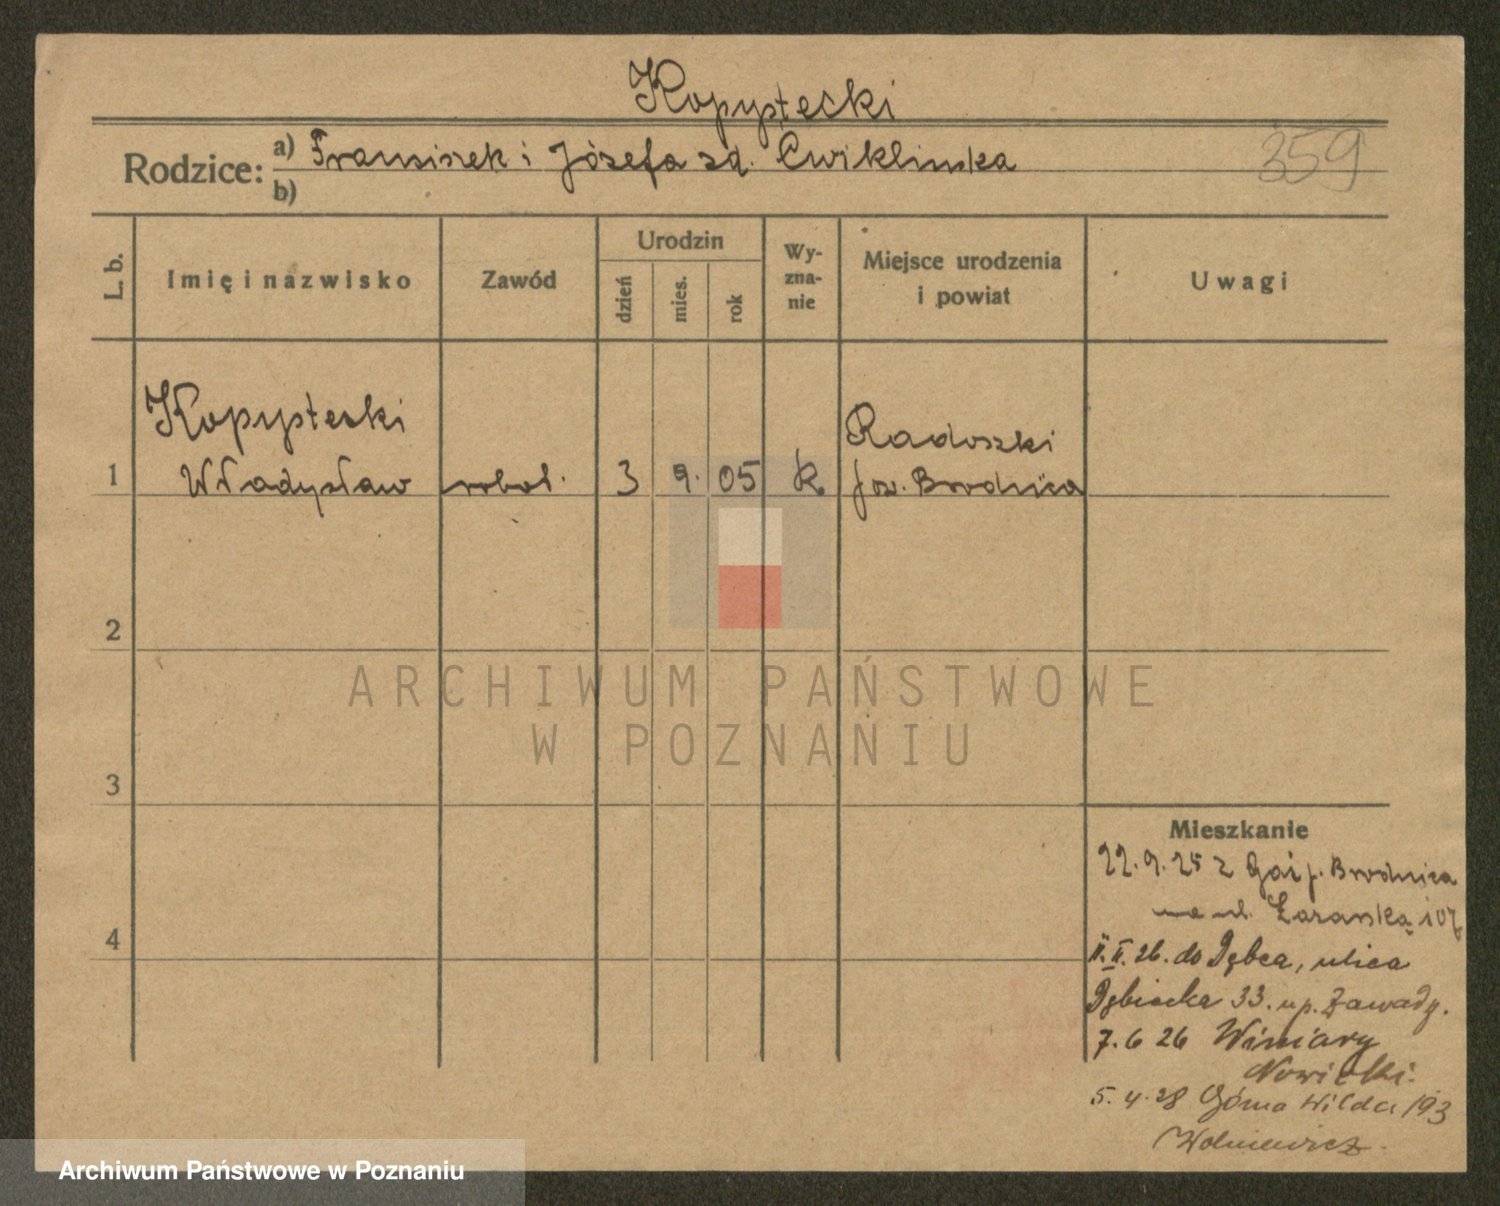 Kopystecki
359
Rodzice: a) Fransiszek i Józefa zd. Ćwiklinska
b)
L. b.
Imię i nazwisko
Zawód
Urodzin
dzień
mies.
rok
Wy-
zna-
nie
Miejsce urodzenia
i powiat
Uwagi
Kopystecki
Radoszki
1 Władysław robot. 3 9. 05 k pow. Brodnica
2
3
4
Mieszkanie
22.9.25 z Gaj p. Brodnica
na ul. Łazarską 107
11.II.26. do Dębca, ulica
Dębiecka 33. u p. Zawady.
7.6 26 Winiary
Nowicki.
5.4.28 Górna Wilda 193
Wolniewicz.
ARCHIWUM PAŃSTWOWE
W POZNANIU
Archiwum Państwowe w Poznaniu